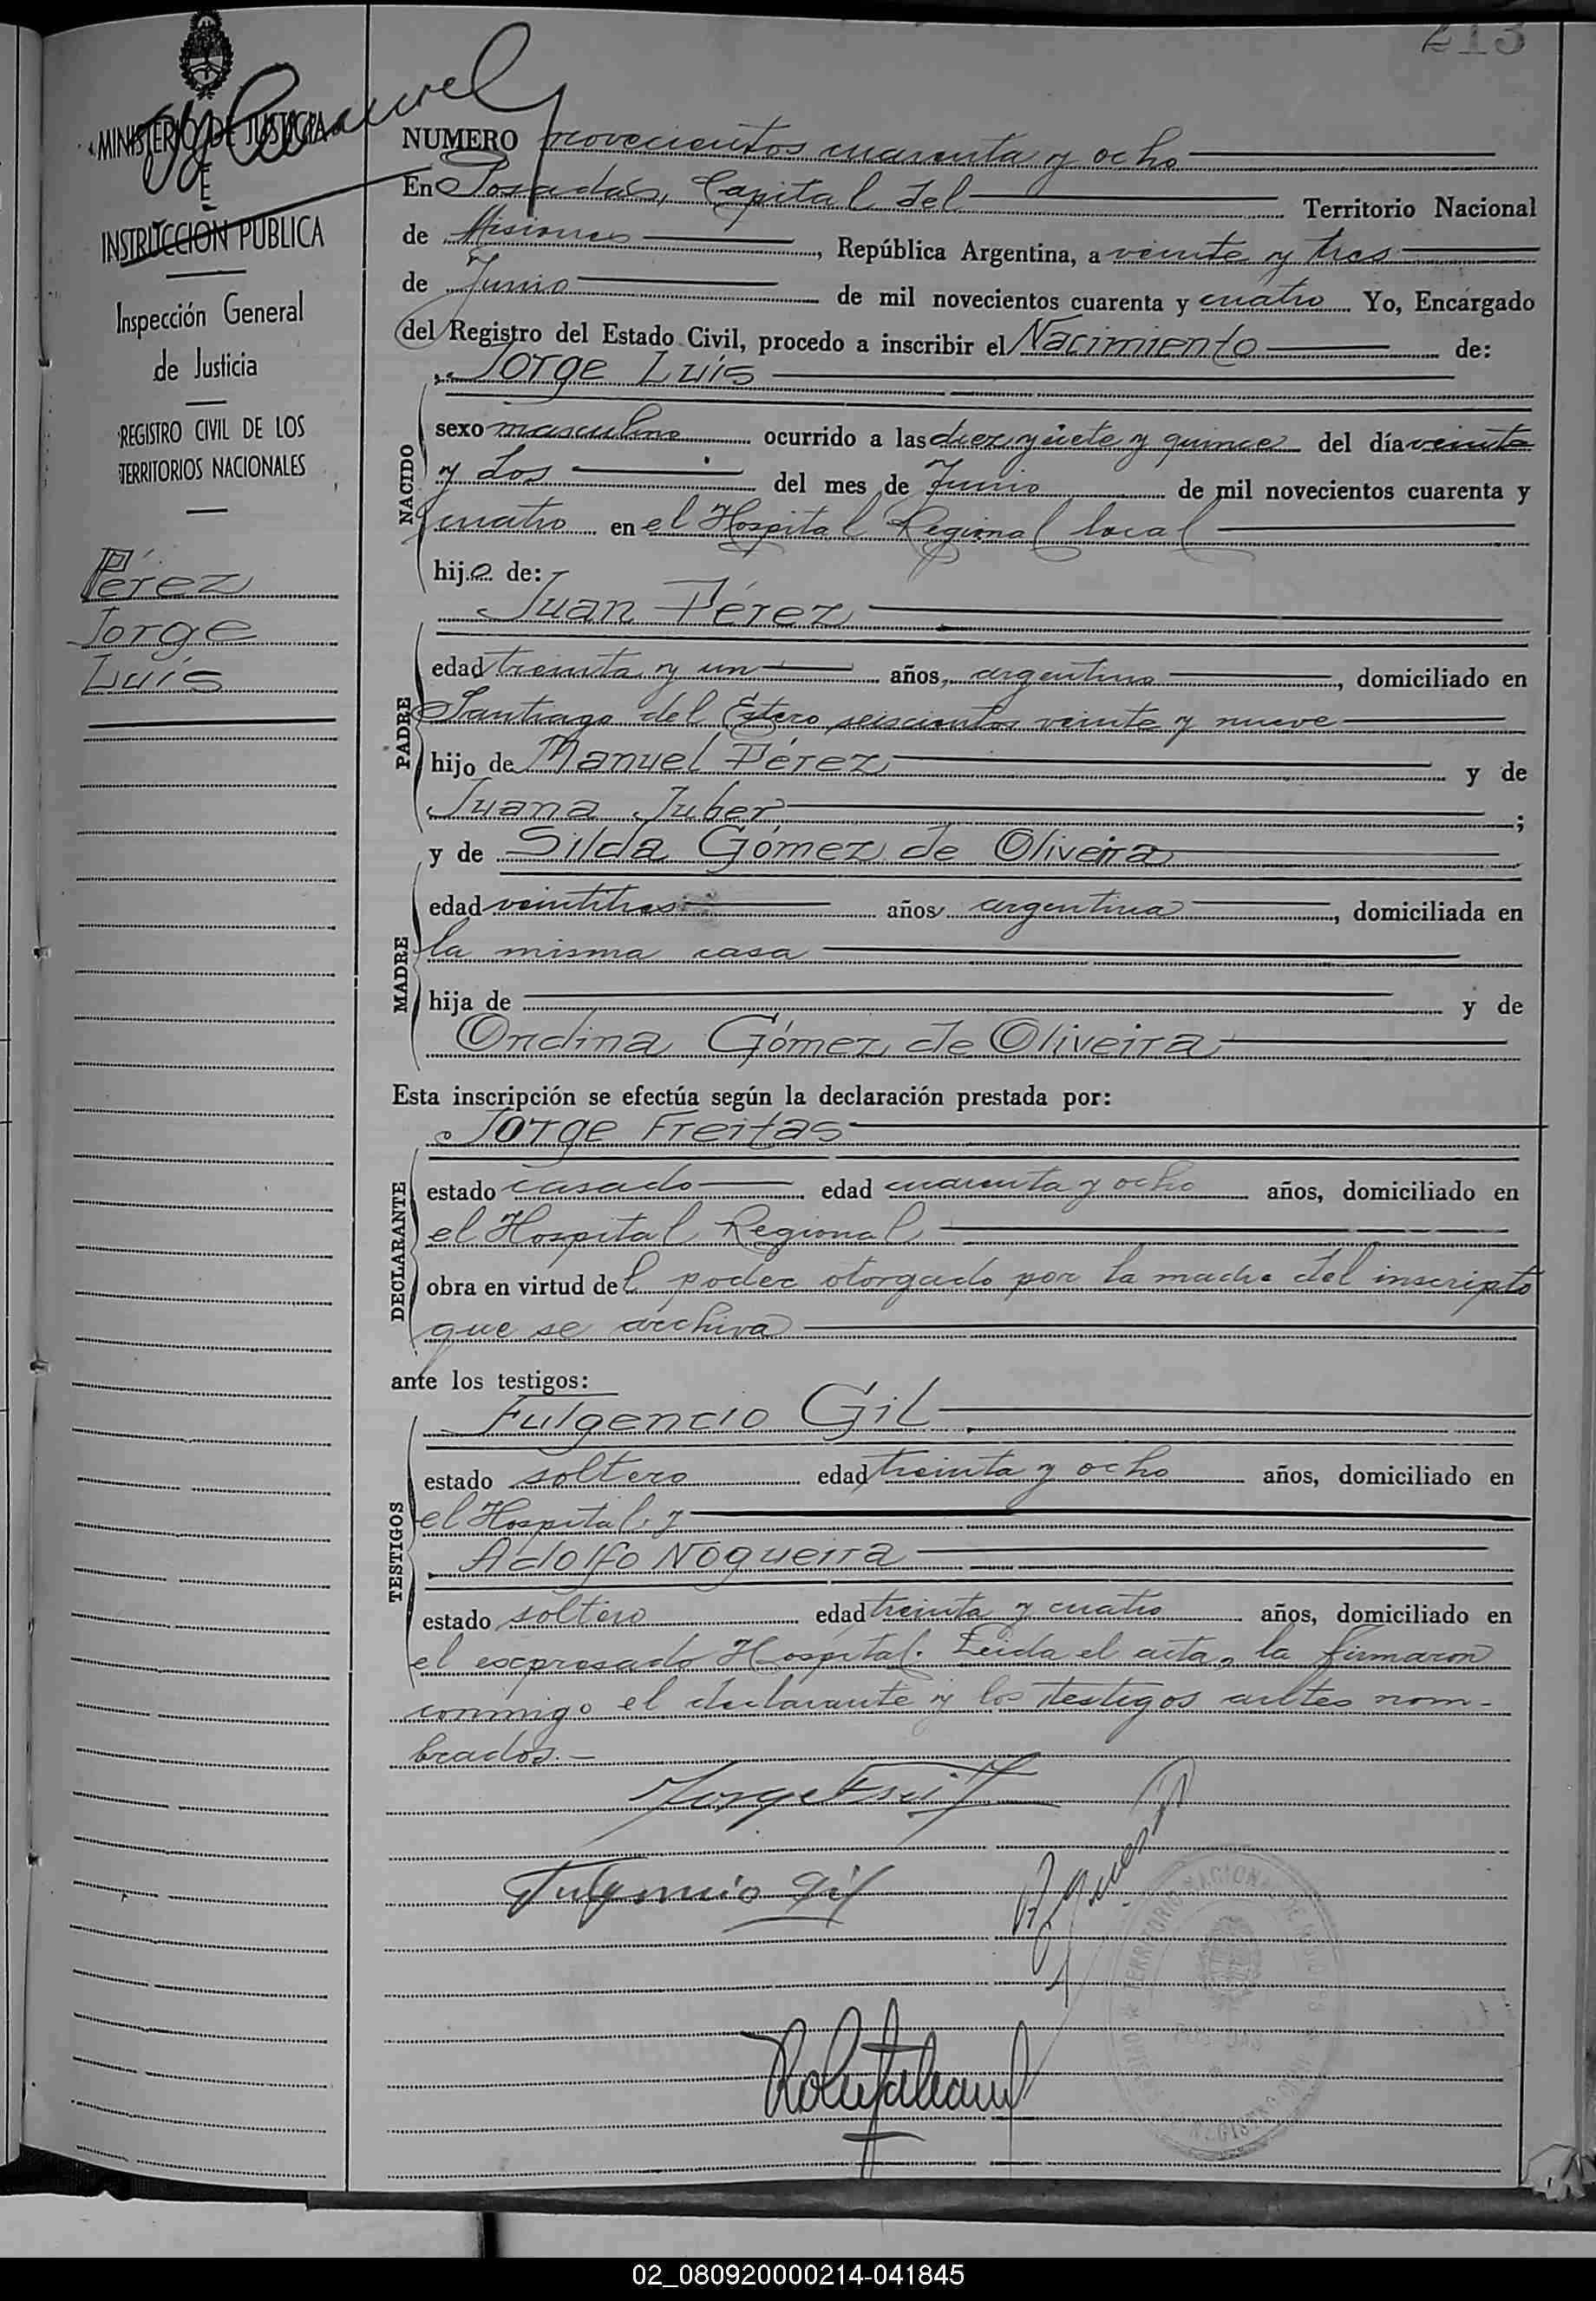 213
MINISTERIO DE JUSTICIA
E
INSTRUCCION PUBLICA
Inspección General
de Justicia
REGISTRO CIVIL DE LOS
TERRITORIOS NACIONALES
Pérez
Jorge
Luis
NUMERO novecientos cuarenta y ocho
En Posadas, Capital del Territorio Nacional
de Misiones, República Argentina, a veinte y tres
de Junio de mil novecientos cuarenta y cuatro Yo, Encargado
del Registro del Estado Civil, procedo a inscribir el Nacimiento de:
Jorge Luis
NACIDO
sexo masculino ocurrido a las diez y siete y quince del día veinte
y dos del mes de Junio de mil novecientos cuarenta y
cuatro en el Hospital Regional local
hijo de:
Juan Pérez
PADRE
edad treinta y un años, argentino, domiciliado en
Santiago del Estero seiscientos veinte y nueve
hijo de Manuel Pérez y de
Juana Juber;
y de Silda Gómez de Oliveira
MADRE
edad veintitres años argentina, domiciliada en
la misma casa
hija de y de
Ondina Gómez de Oliveira
Esta inscripción se efectúa según la declaración prestada por:
Jorge Freitas
DECLARANTE
estado casado edad cuarenta y ocho años, domiciliado en
el Hospital Regional
obra en virtud del poder otorgado por la madre del inscripto
que se archiva
ante los testigos:
Fulgencio Gil
TESTIGOS
estado soltero edad treinta y ocho años, domiciliado en
el Hospital y
Adolfo Nogueira
estado soltero edad treinta y cuatro años, domiciliado en
el expresado Hospital. Leida el acta, la firmaron
conmigo el declarante y los testigos antes nom-
brados.-
Fulgencio Gil
TERRITORIO NACIONAL DE MISIONES
POSADAS
02_080920000214-041845